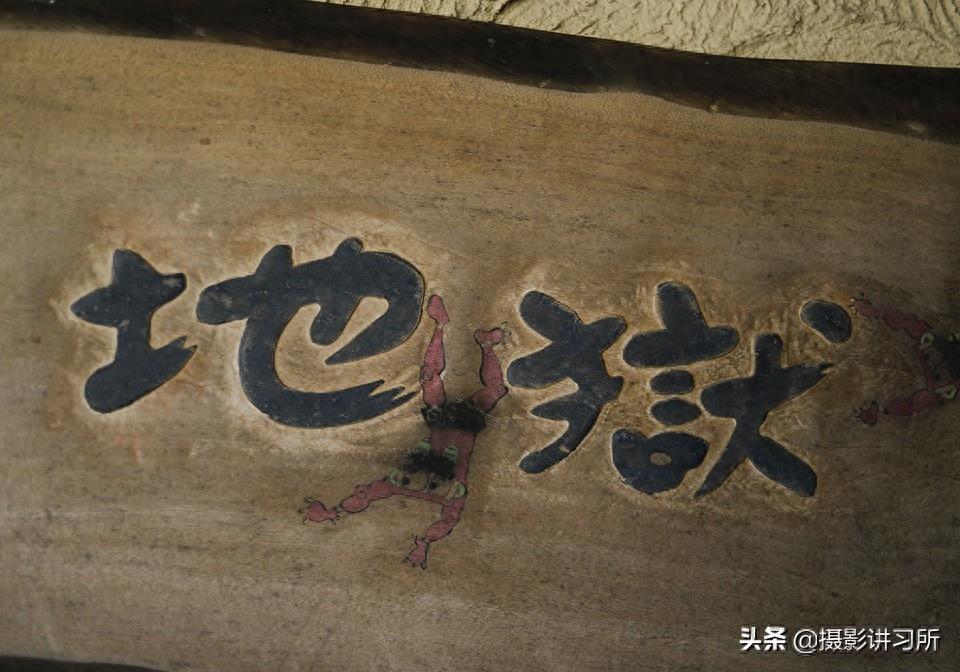 地獄
头条 @摄影讲习所